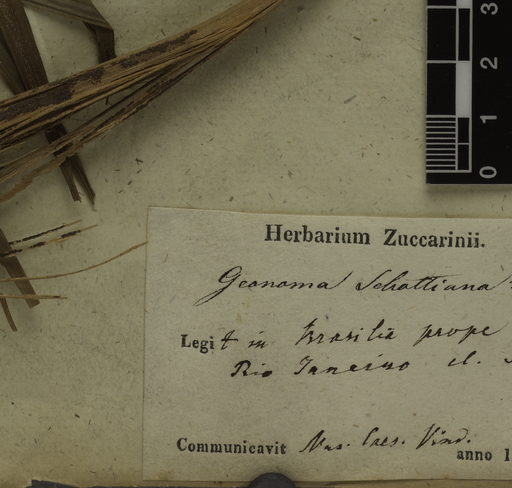 3
2
1
0
Herbarium Zuccarinii.
Geonoma Schottiana
Legit in Brasilia prope
Rio Janeiro cl.
Communicavit Mus. Caes. Vind.
anno 1